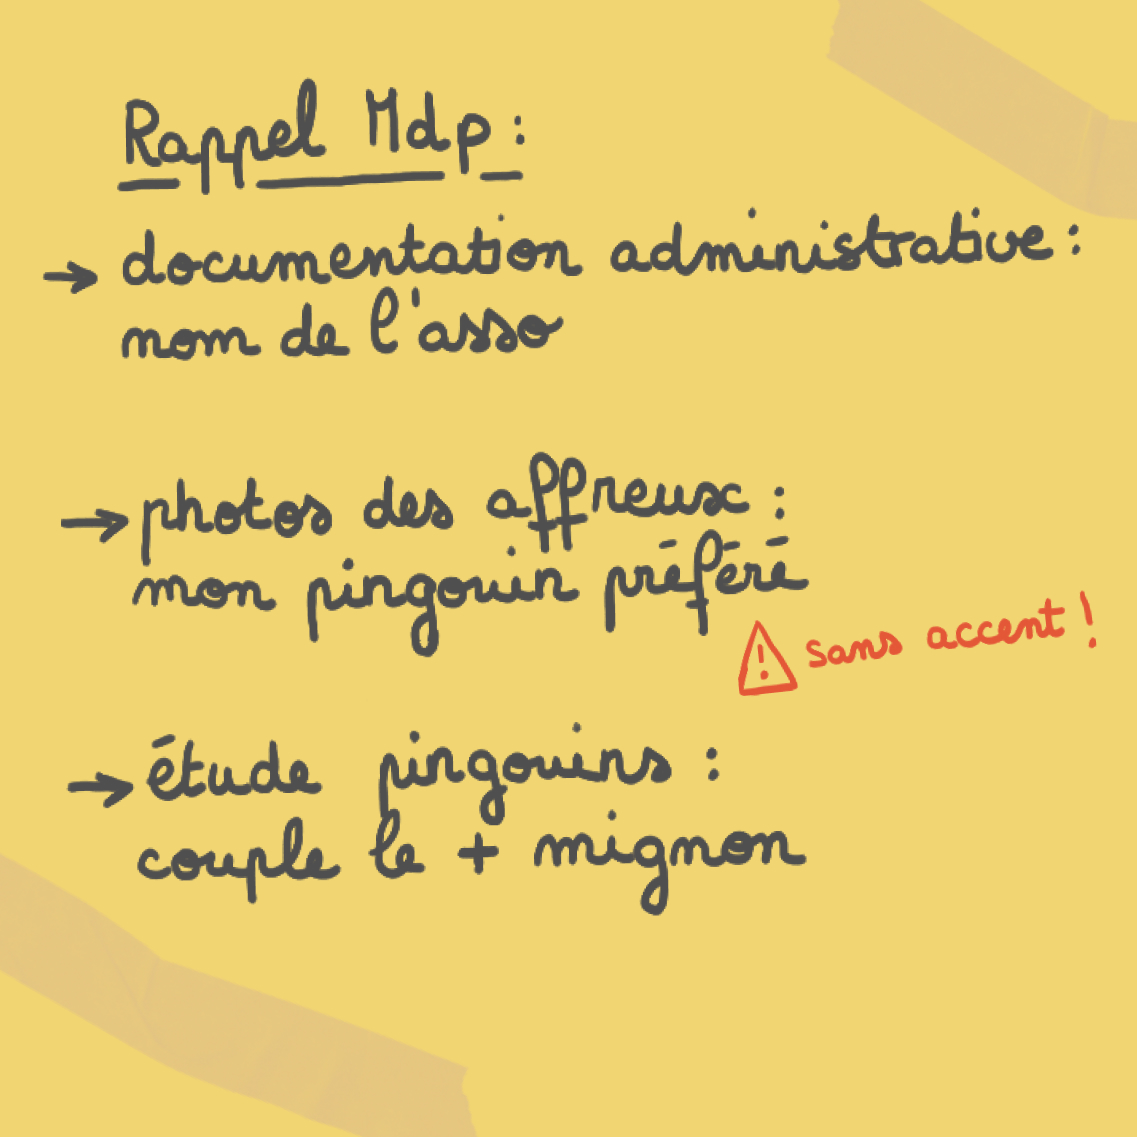 Rappel Mdp :
→ documentation administrative :
nom de l'asso
→ photos des affreux :
mon pingouin préféré
⚠ sans accent !
→ étude pingouins :
couple le + mignon